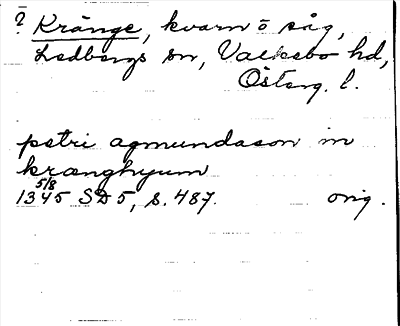 ? Krånge, kvarn o såg,
Ledbergs sn, Valkebo hd,
Österg. l.
petri agmundason in
kranghyum
5/8
1345 SD 5, s. 487. orig.